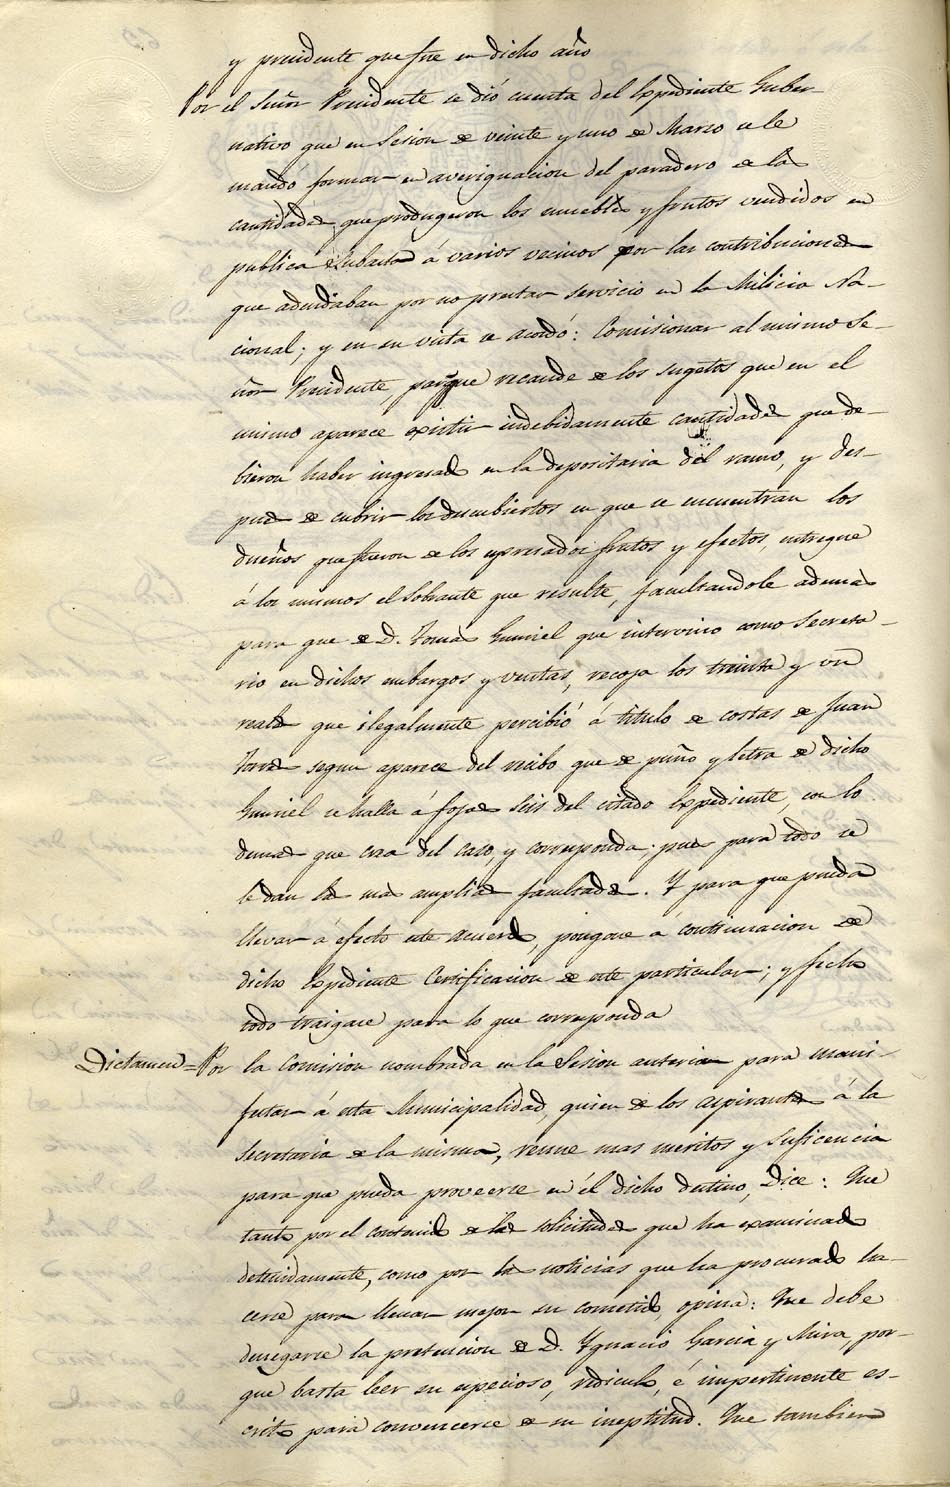 y presidente que fue en dicho año
Por el Señor Presidente se dió cuenta del Expediente Guber-
nativo que en Sesion de veinte y uno de Marzo se le
mandó formar en averiguacion del paradero de las
cantidades que produgeron los muebles y frutos vendidos en
publica Subasta á varios vecinos por las contribuciones
que adeudaban por no prestar servicio en la Milicia Na-
cional; y en su vista se acordó: Comisionar al mismo Se-
ñor Presidente, para que recaude de los sugetos que en el
mismo aparece existir indebidamente cantidades que de-
bieron haber ingresado en la depositaria del ramo, y des-
pues de cubrir los descubiertos en que se encuentran los
dueños que fueron de los espresados frutos y efectos, entregue
á los mismos el Sobrante que resulte, facultandole ademas
para que de D. Tomas Gumiel que intervino como Secreta-
rio en dichos embargos y ventas, recoja los treinta y un
reales que ilegalmente percibió á titulo de costas de Juan
Torres segun aparece del recibo que de puño y letra de dicho
Gumiel se halla á fojas Seis del citado Expediente, con lo
demas que crea del caso, y corresponda; pues para todo se
le dan las mas amplias facultades. Y para que pueda
llevar á efecto este acuerdo, pongase á continuacion de
dicho Expediente Certificacion de este particular; y fecho
todo traigase para lo que corresponda
Dictamen = Por la Comision nombrada en la Sesion anterior para mani-
festar á esta Municipalidad, quien de los aspirantes á la
Secretaria de la misma, reune mas meritos y Suficencia
para que pueda proveerse en él dicho destino, Dice: Que
tanto por el contenido de las solicitudes que ha examinado
detenidamente, como por las noticias que ha procurado ha-
cerse para llevar mejor su cometido, opina: Que debe
denegarse la pretension de D. Ygnacio Garcia y Mira, por-
que basta leer su especioso, ridiculo, é impertinente es-
crito para convencerse de su ineptitud. Que tambien